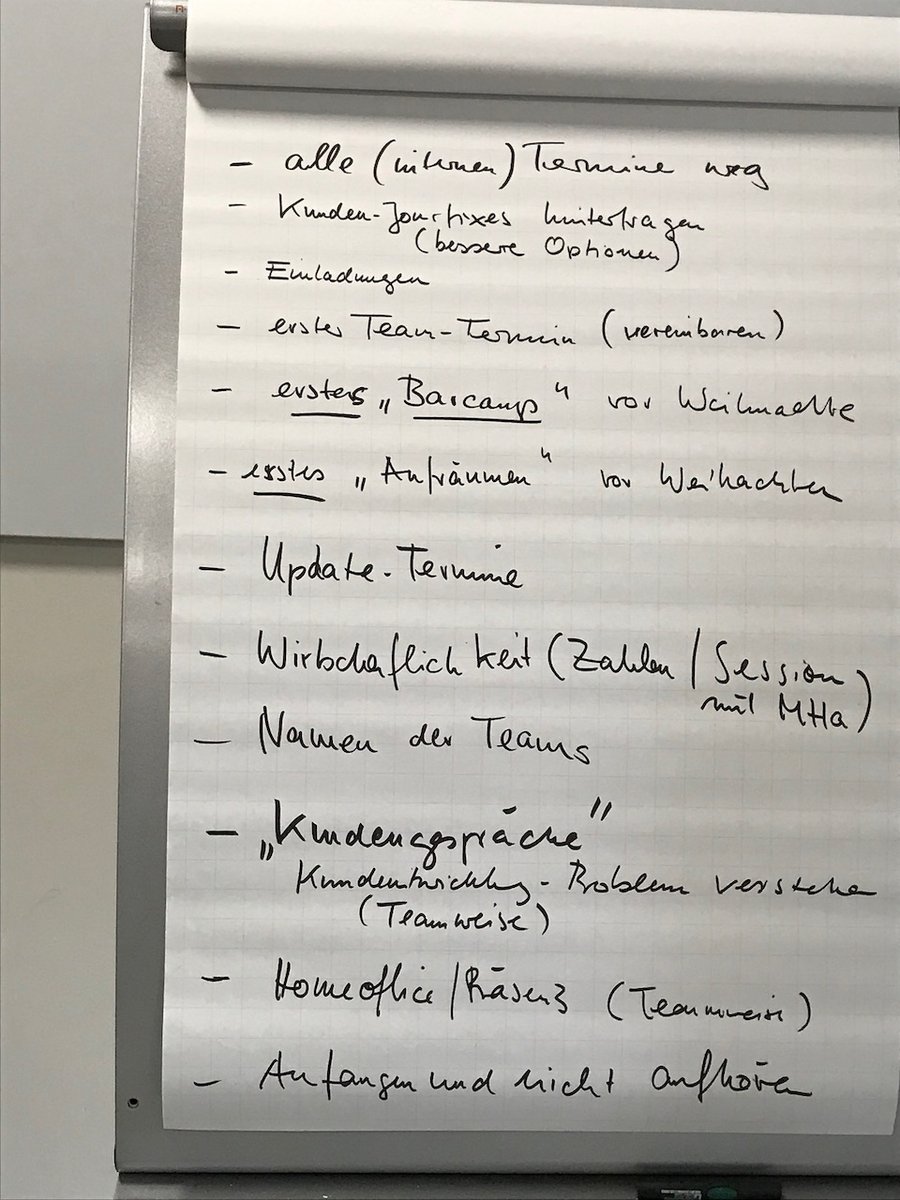 - alle (internen) Termine weg
- Kunden-Jourfixes hinterfragen
(bessere Optionen)
- Einladungen
- erster Team-Termin (vereinbaren)
- erstes „Barcamp" vor Weihnachte
- erstes „Aufräumen" vor Weihachten
- Update-Termine
- Wirtschaflichkeit (Zahlen / Session
mit MHa)
- Namen der Teams
- „Kundengespräche"
Kundentwicklung - Problem verstehen
(Teamweise)
- Homeoffice / Präsenz (Teamweise)
- Anfangen und nicht aufhören